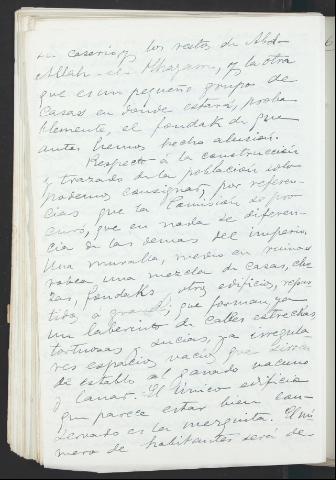 caserio, y los restos de Abd-
Allah - el - Mhazam, y la otra
que es un pequeño grupo de
Casas en donde estará, proba-
blemente, el fondak de que
antes hemos hecho alusion.
Respecto á la construccion
y trazado de la poblacion solo
podemos consignar, por referen-
cias que la Comision se pro-
curó, que en nada se diferen-
cia de las demas del imperio.
Una muralla, medio en ruinas
rodea una mezcla de casas, cho-
zas, fondaks y otros edificios, repar-
tidos á granel, que forman, ya
un laberinto de calles estrechas
tortuosas y sucias, ya irregula-
res espacios vacios que sirven
de establo al ganado vacuno
y lanar. El único edificio
que parece estar bien con-
servado es la mezquita. El nú-
mero de habitantes será de